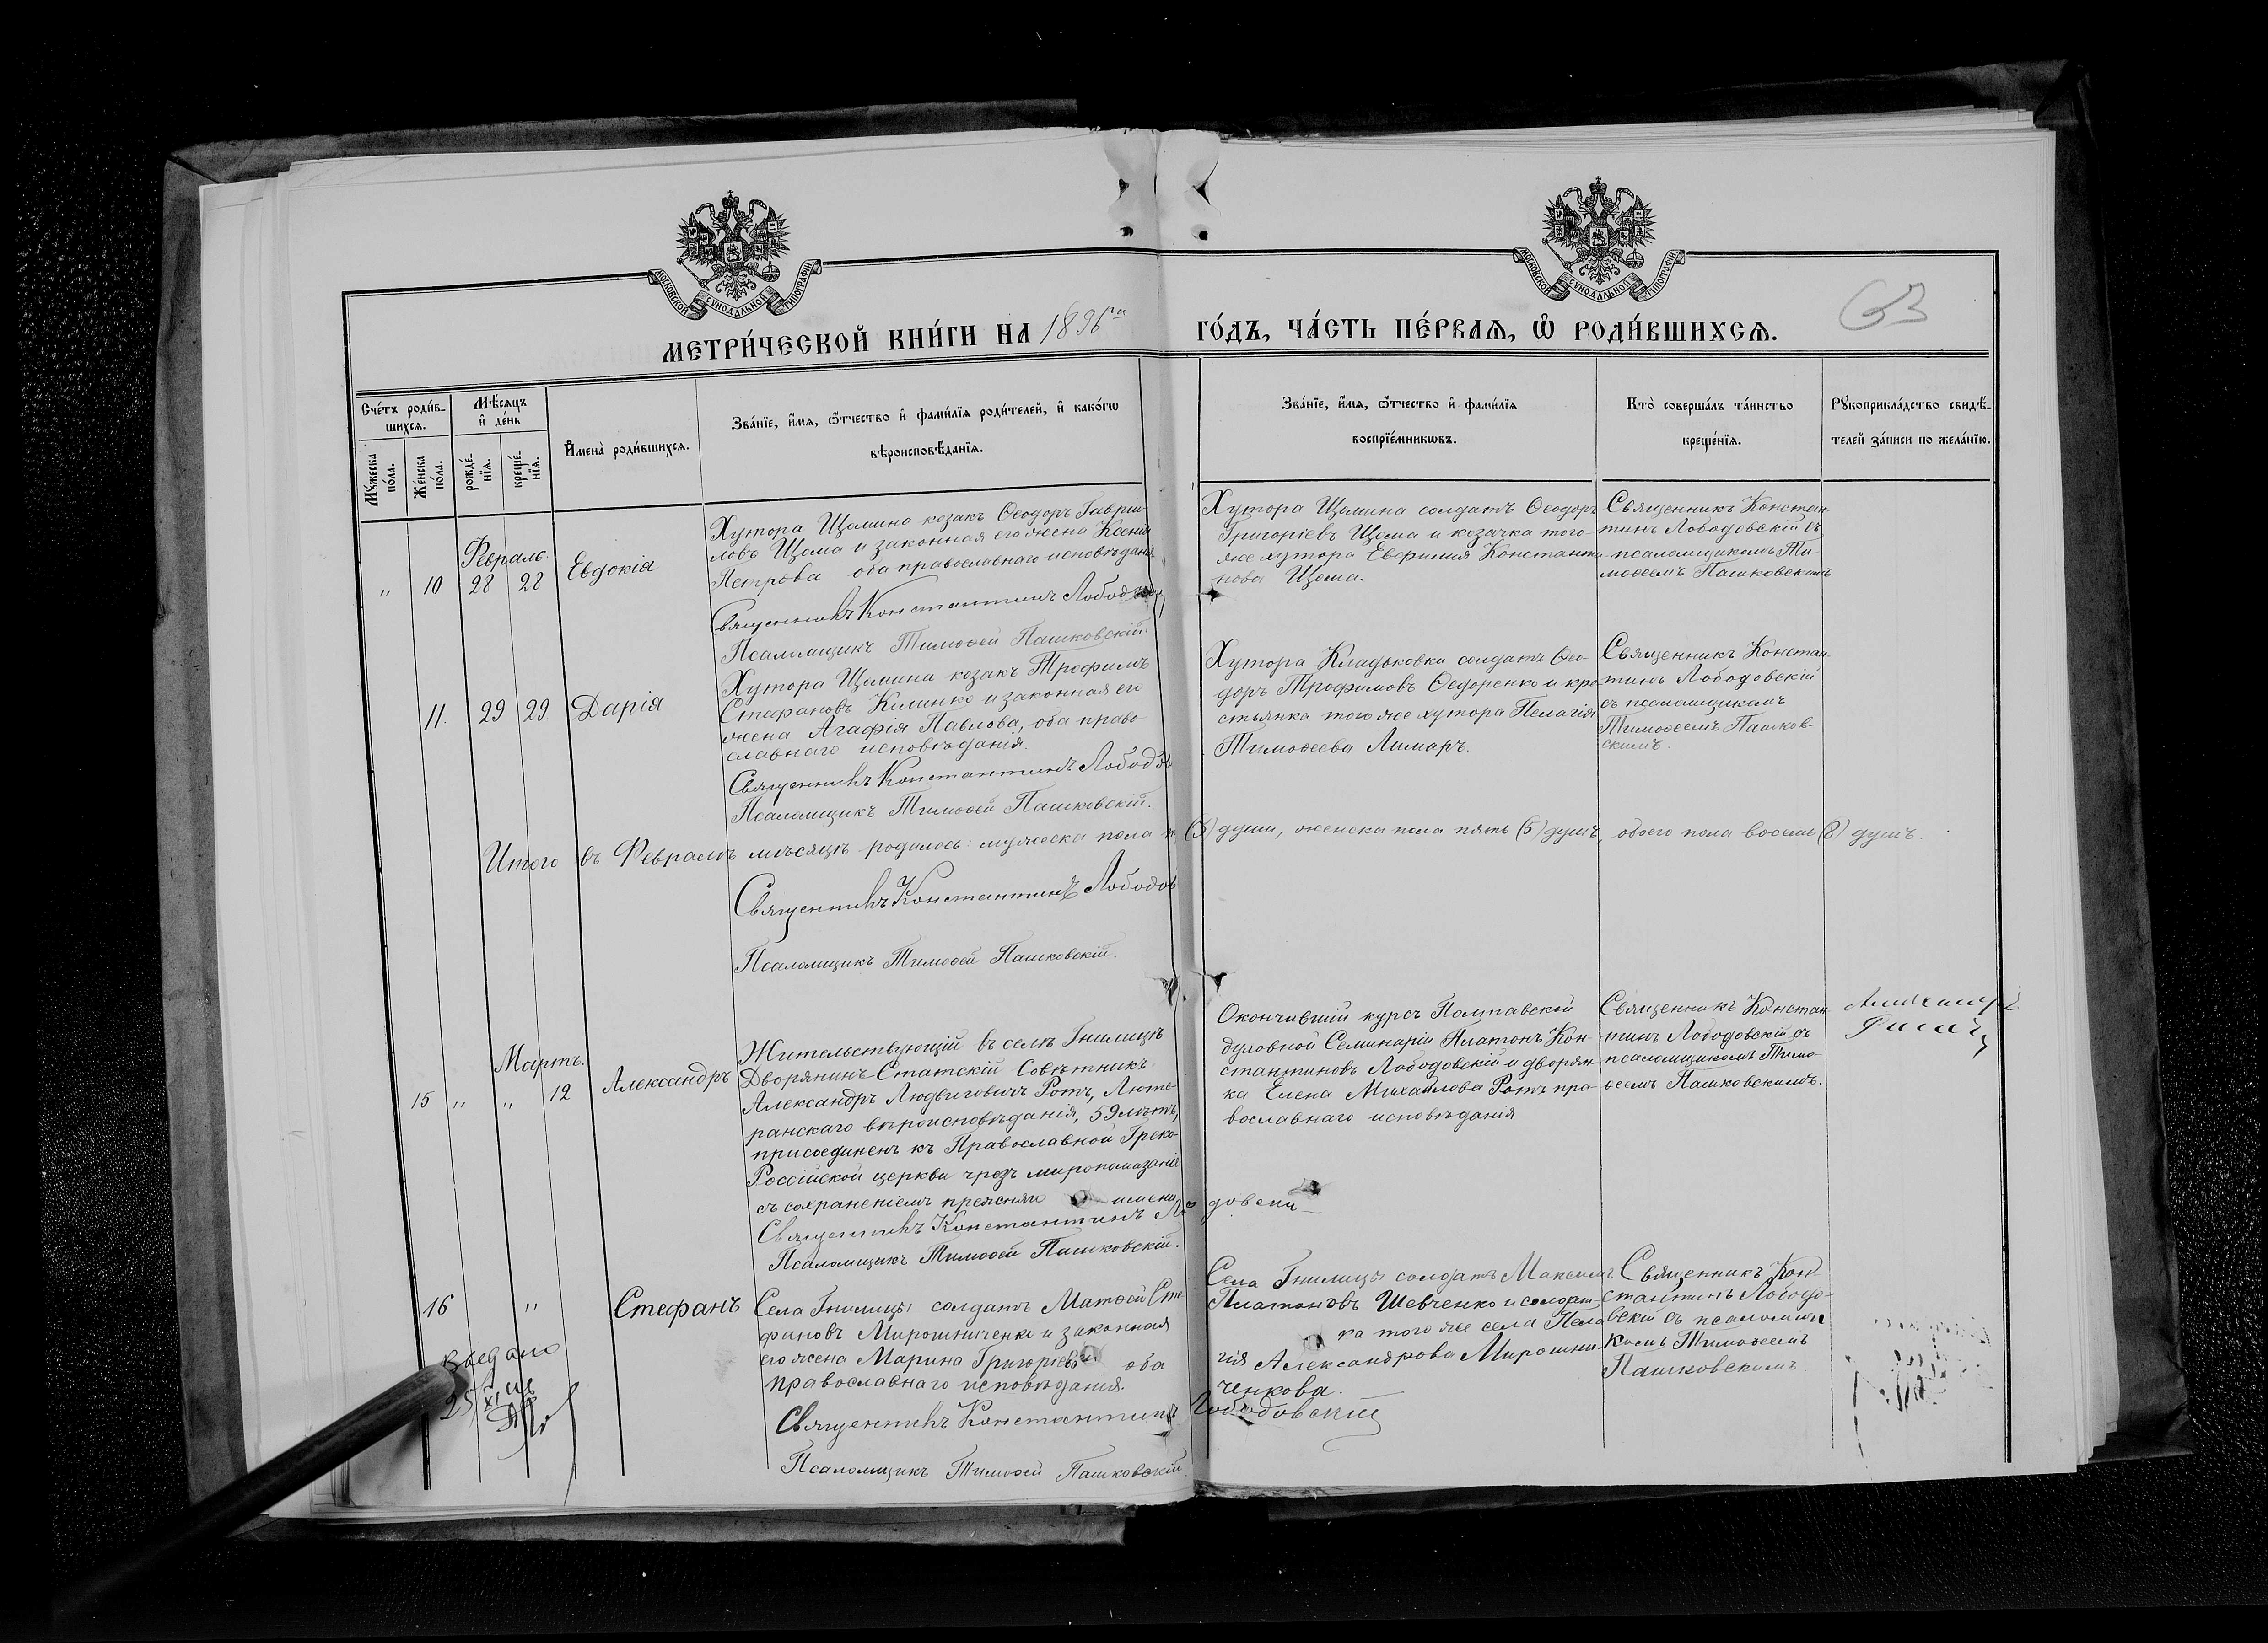 МОСКОВСКОЙ СУНОДАЛЬНОЙ ТИПОГРАФІИ
МОСКОВСКОЙ СУНОДАЛЬНОЙ ТИПОГРАФІИ
63
МЕТРИ́ЧЕСКОЙ КНИ́ГИ НА 1896 го́дъ, ЧА́СТЬ ПЕ́РВАѦ, Ѡ҆ РОДИ́ВШИХСѦ.
Сче́тъ роди́в-
шихсѧ.
Мѣ́сѧцъ
и҆ де́нь
Мꙋ́жеска по́ла.
Же́нска по́ла.
рожде́-
нїѧ.
креще́-
нїѧ.
И҆мена̀ роди́вшихсѧ.
Зва́нїе, и҆́мѧ, ѻ҆́тчество и҆ фами́лїѧ роди́телей, и҆ како́гѡ
вѣроисповѣ́данїѧ.
Зва́нїе, и҆́мѧ, ѻ҆́тчество и҆ фами́лїѧ
воспрїе́мникѡвъ.
Кто̀ соверша́лъ та́инство
креще́нїѧ.
Рꙋкоприкла́дство свидѣ́-
телей за́писи по жела́нїю.
Февраль
" 10 28 28 Евдокія
Хутора Щомина козакъ Ѳеодоръ Гаврiи-
ловъ Щома и законная его жена Ксенія
Петрова оба православнаго исповѣданія
Священникъ Константинъ Лободовскій
Псаломщикъ Тимоѳей Пашковскій.
Хутора Щомина солдатъ Ѳеодоръ
Григоріевъ Щома и козачка того-
же хутора Евфимія Константи-
нова Щома.
Священникъ Констан-
тинъ Лободовскій съ
псаломщикомъ Ти-
моѳеемъ Пашковскимъ
11. 29 29. Дарія
Хутора Щомина козакъ Трофимъ
Стефановъ Калинко и законная его
жена Агафія Павлова, оба право-
славнаго исповѣданія.
Священникъ Константинъ Лободов
Псаломщикъ Тимоѳей Пашковскій.
Хутора Кладьковки солдатъ Ѳео-
доръ Трофимовъ Ѳедоренко и кре-
стьянка того же хутора Пелагія
Тимоѳеева Лимаръ.
Священникъ Констан-
тинъ Лободовскій
съ псаломщикомъ
Тимоѳеемъ Пашков-
скимъ.
Итого въ Февралѣ мѣсяцѣ родилось: мужеска пола (3) души, женска пола пять (5) душъ, обоего пола восемь (8) душъ.
Священникъ Константинъ Лободов
Псаломщикъ Тимоѳей Пашковскій.
Мартъ.
15 " " 12 Александръ
Жительствующій въ селѣ Гнилицѣ
Дворянинъ Статскій Совѣтникъ
Александръ Людвиговичъ Ротъ, Люте-
ранскаго вѣроисповѣданія, 59 лѣтъ,
присоединенъ къ Православной Греко-
Россійской церкви чрезъ миропомазаніе
съ сохраненіемъ прежняго имени
Священникъ Константинъ Лободовскій
Псаломщикъ Тимоѳей Пашковскій.
Окончившій курсъ Полтавской
духовной Семинаріи Платонъ Кон-
стантиновъ Лободовскій и дворян-
ка Елена Михайлова Ротъ пра-
вославнаго исповѣданія
Священникъ Констан-
тинъ Лободовскій съ
псаломщикомъ Тимо-
ѳеемъ Пашковскимъ.
16 " Стефанъ
Села Гнилицы солдатъ Матѳей Сте-
фановъ Мирошниченко и законная
его жена Марина Григоріева оба
православнаго исповѣданія.
Священникъ Константинъ Лободовскій
Псаломщикъ Тимоѳей Пашковскій.
Села Гнилицы солдатъ Максимъ
Платоновъ Шевченко и солдат-
ка того же села Пела-
гія Александрова Мирошни-
ченкова.
Священникъ Кон-
стантинъ Лободо-
вскій съ псаломщи-
комъ Тимоѳеемъ
Пашковскимъ.
выдано